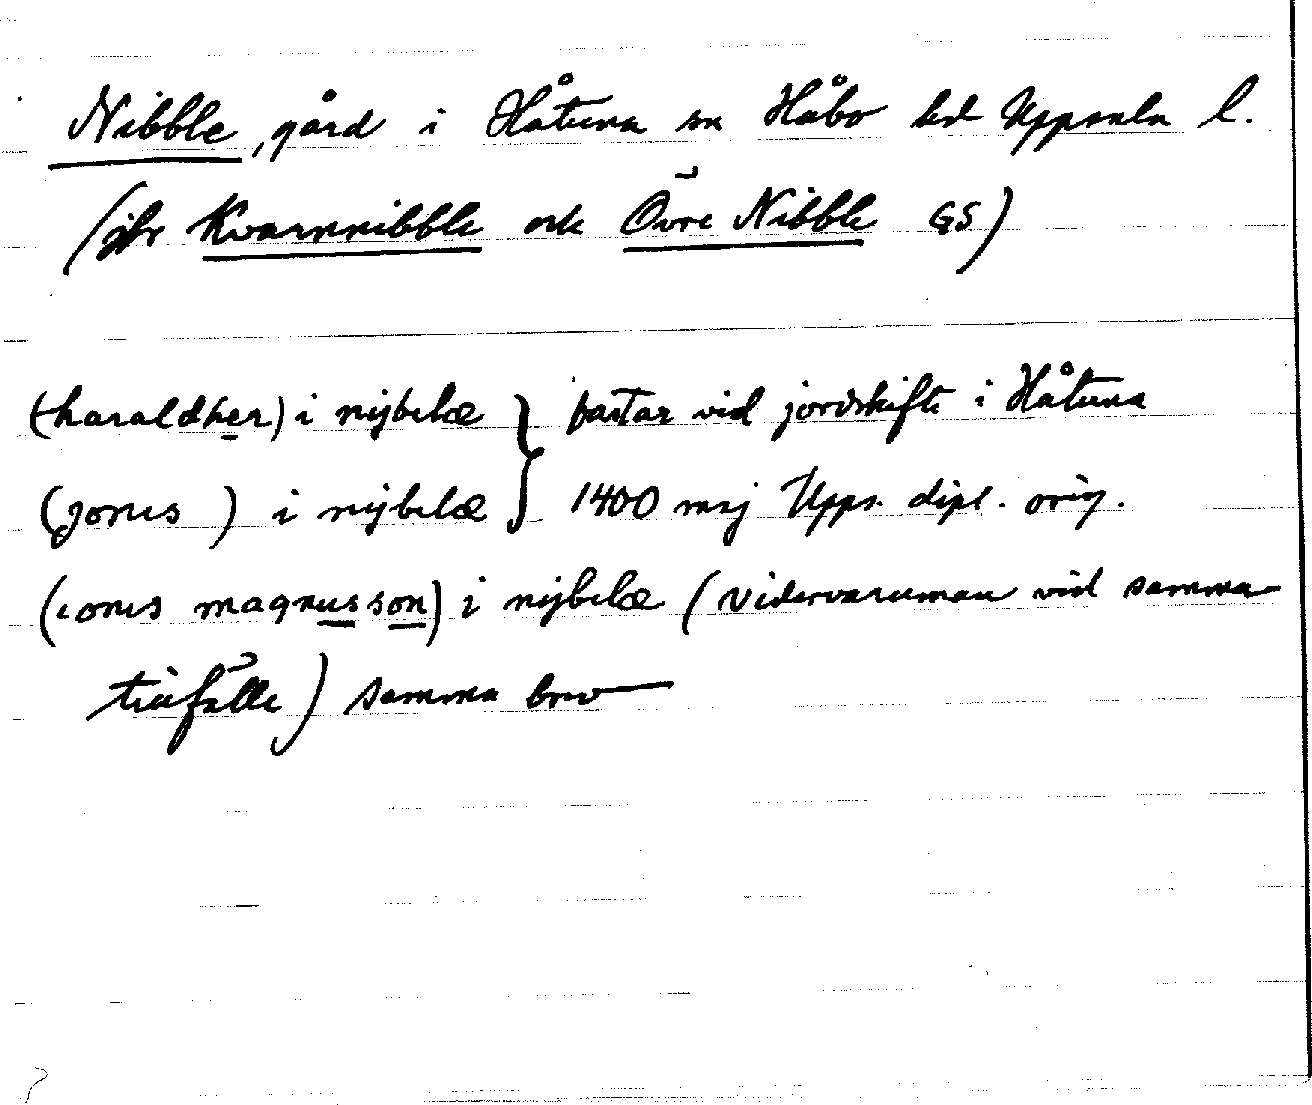 Nibble, gård i Håtuna sn Håbo hd Uppsala l.
(jfr Kvarnnibble och Övre Nibble GS)
(haraldher) i nijbelæ } fastar vid jordskifte i Håtuna
(jonis ) i nijbelæ } 1400 maj Upps. dipl. orig.
(ionis magnusson) i nijbelæ (vidervaruman vid samma
tillfälle) samma brev
?